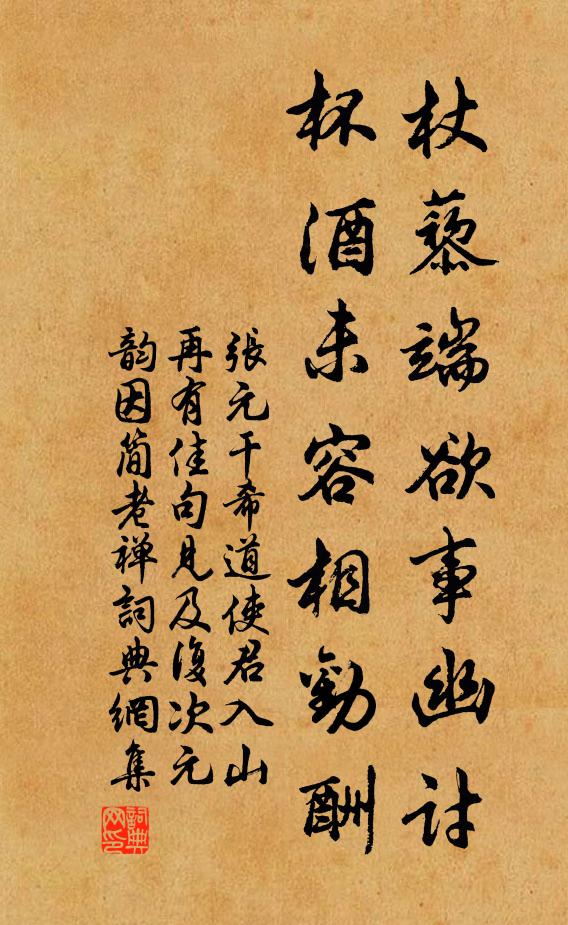 杖藜端欲事幽討
杯酒未容相勸酬
張元干希道使君入山
再有佳句見及復次元
韵因简老禅詞典網集
詞典网印